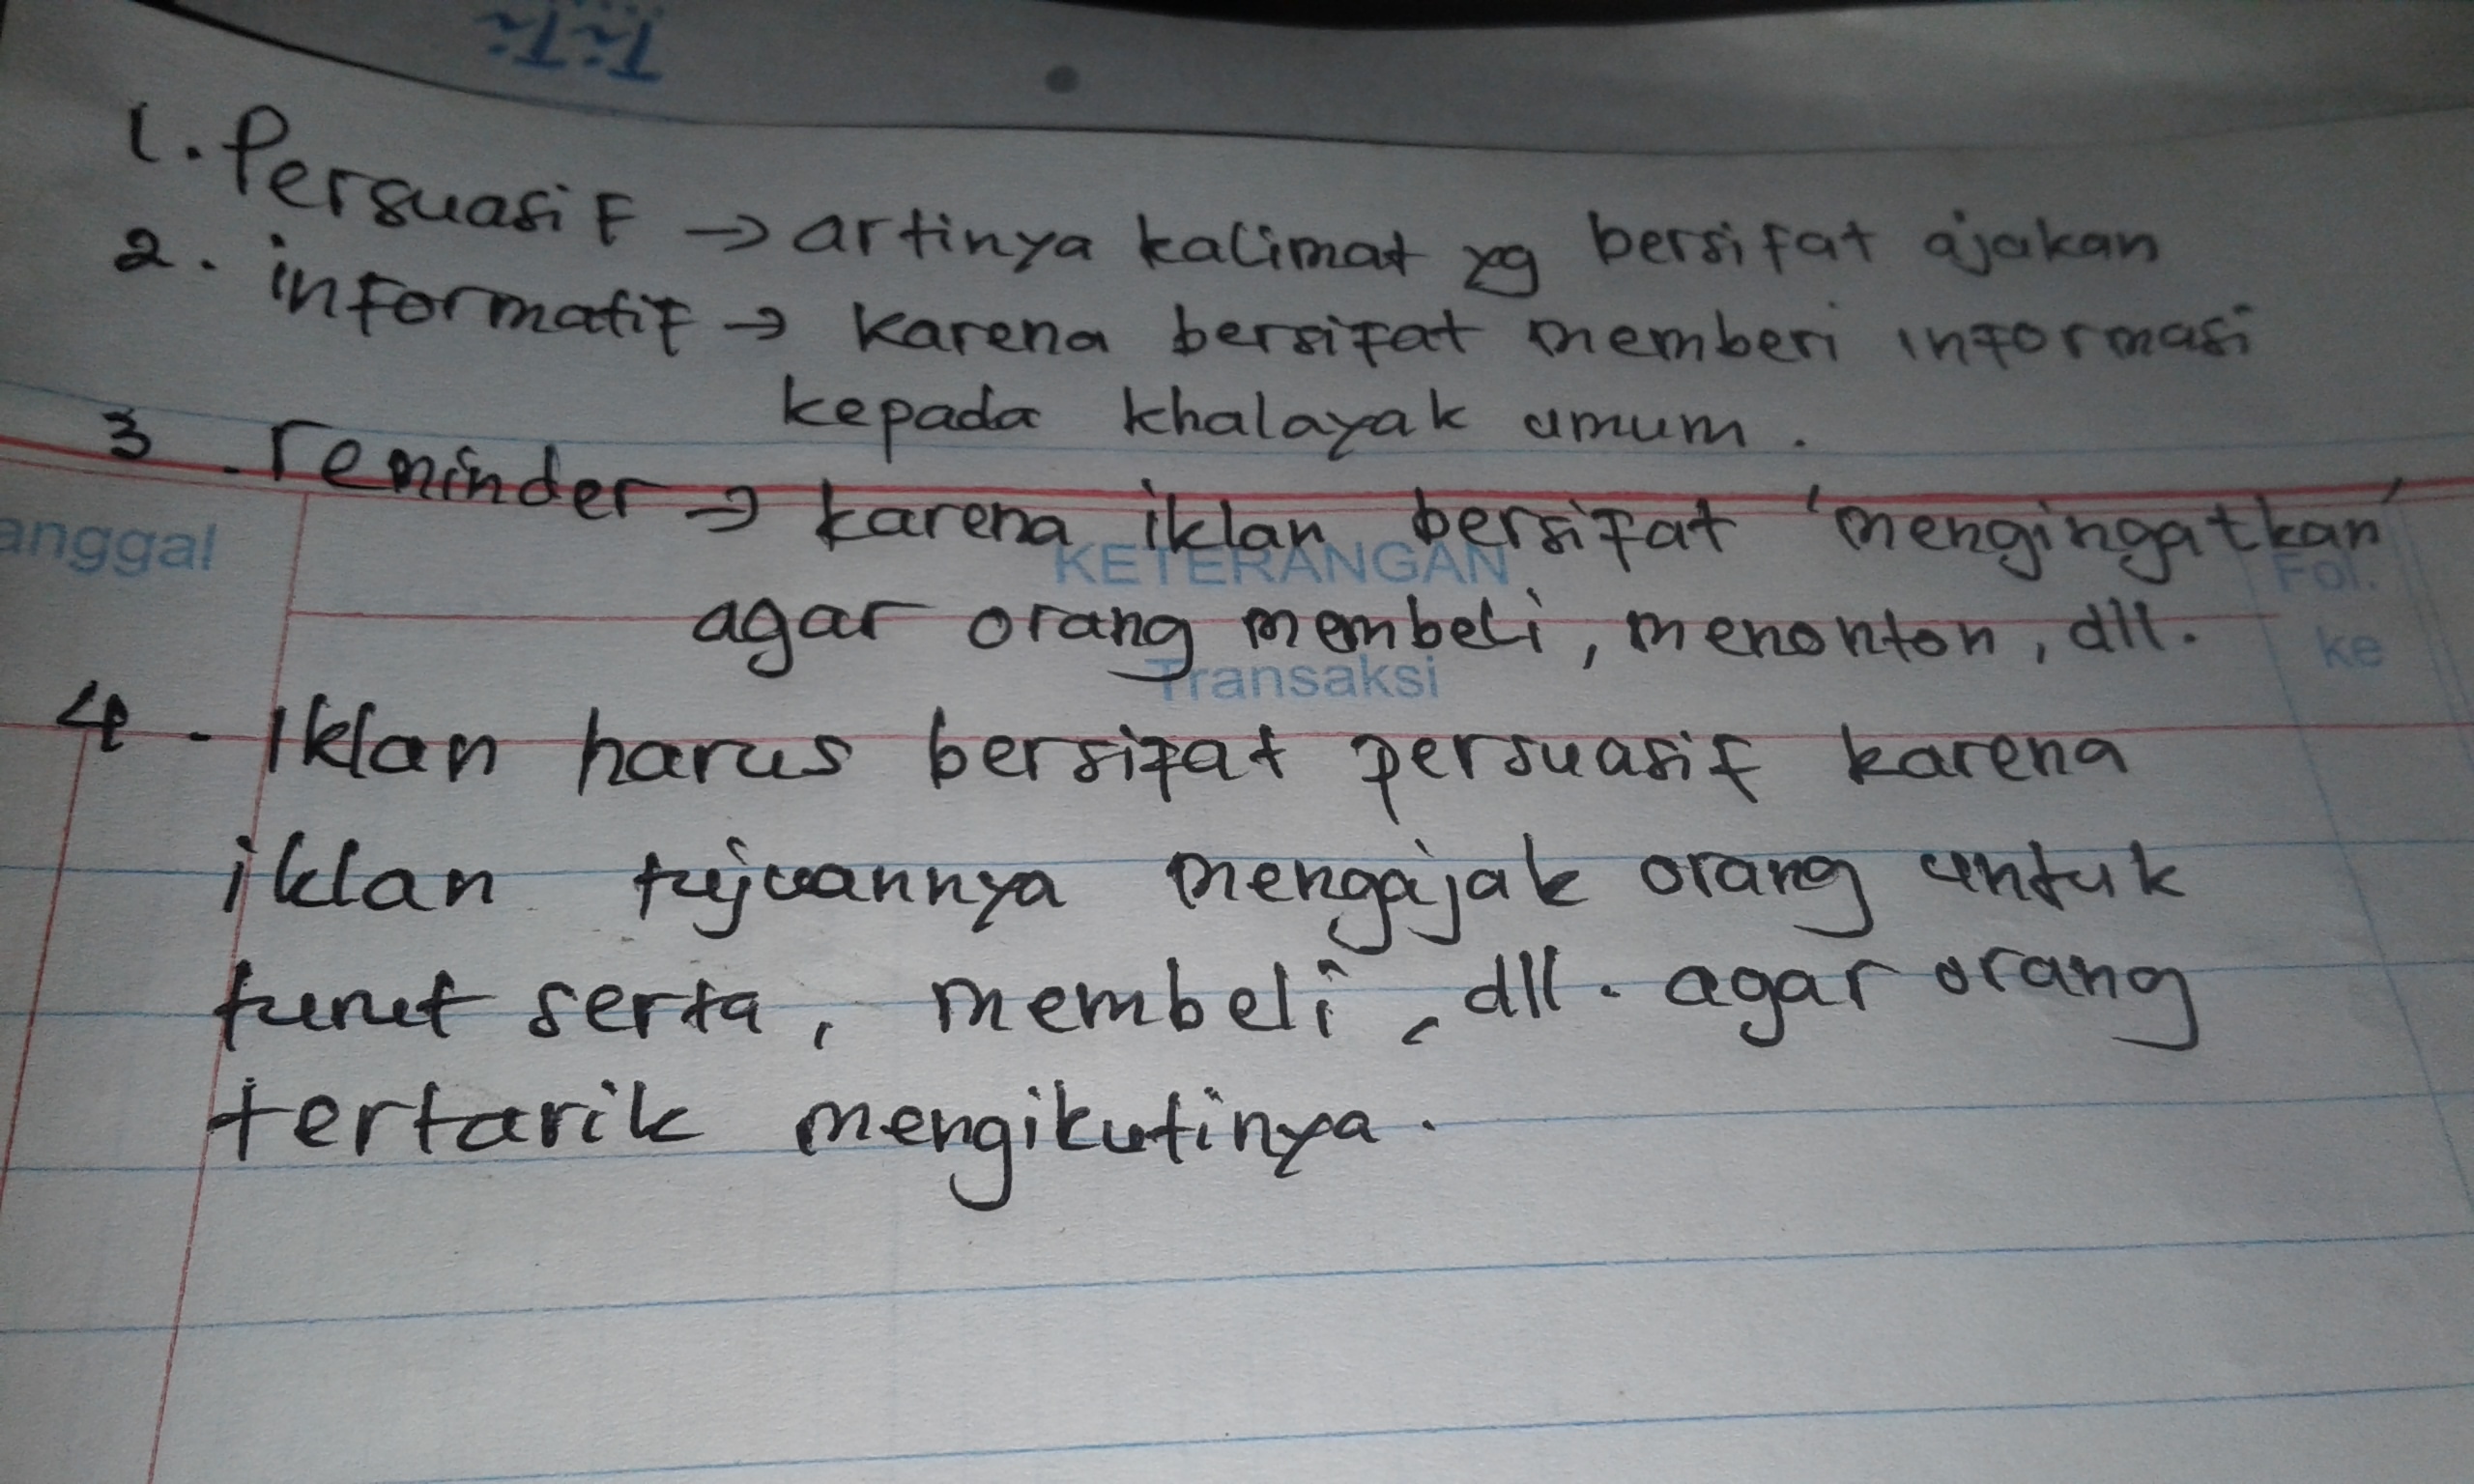 1. Persuasif → artinya kalimat yg bersifat ajakan
2. informatif → karena bersifat memberi informasi
kepada khalayak umum.
3. reminder → karena iklan bersifat 'mengingatkan'
anggal
KETERANGAN
Fol.
agar orang membeli, menonton, dll.
ke
Transaksi
4. Iklan harus bersifat persuasif karena
iklan tujuannya mengajak orang untuk
turut serta, membeli, dll. agar orang
tertarik mengikutinya.